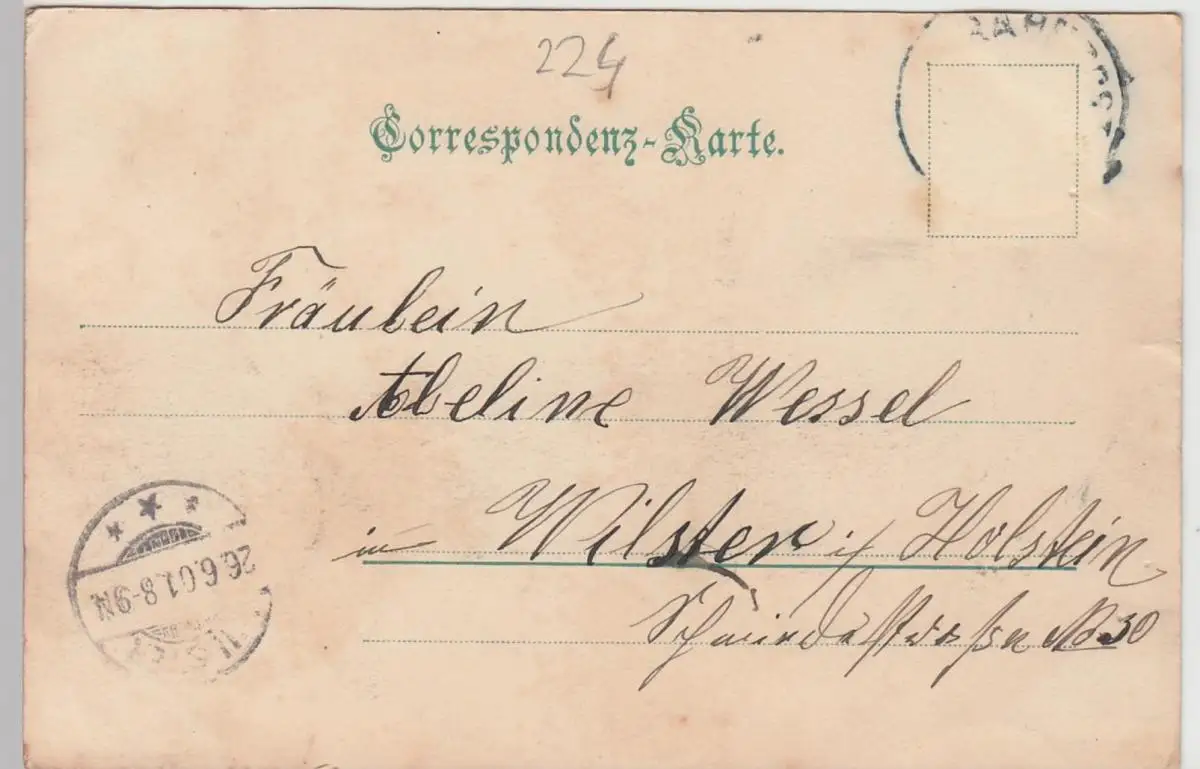 224
Correspondenz-Karte.
Fräulein
Abeline Wessel
in Wilster i/ Holstein
No 30
26.6.01.8-9N.